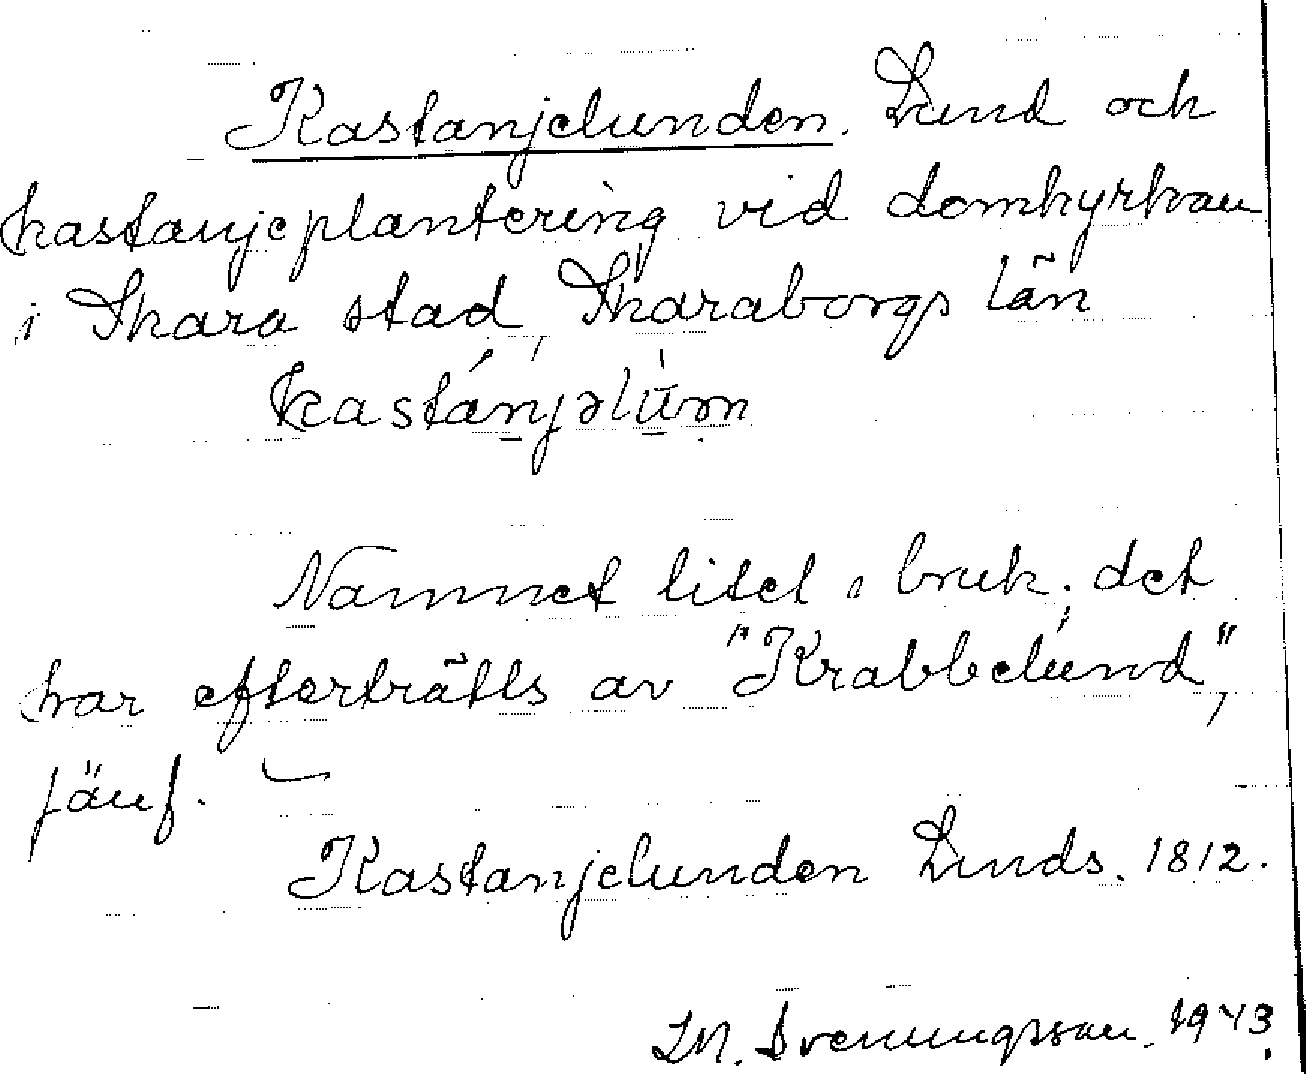 Kastanjelunden. Lund och
kastanjeplantering vid domkyrkan
i Skara stad, Skaraborgs län
Namnet litet i bruk; det
har efterträtts av "Krabbelund",
jämf.
Kastanjelunden Linds. 1812.
1943.